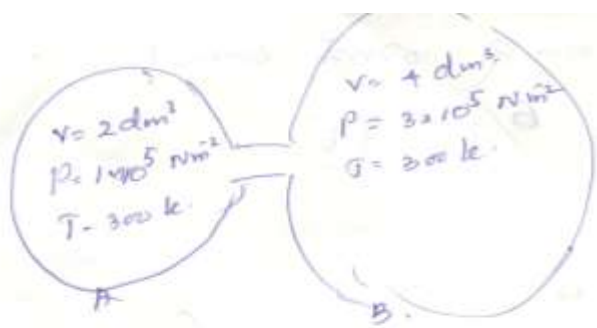 V= 2 dm³
P= 1×10⁵ Nm⁻²
T- 300 k.
A
V= 4 dm³
P= 3×10⁵ Nm⁻²
T= 300 k.
B.